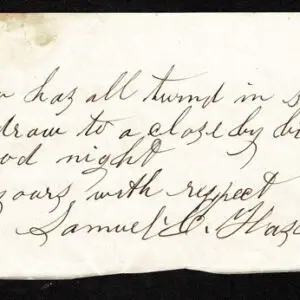 has all turnd in s
draw to a close by b
od night
yours with respect
Samuel C. Has